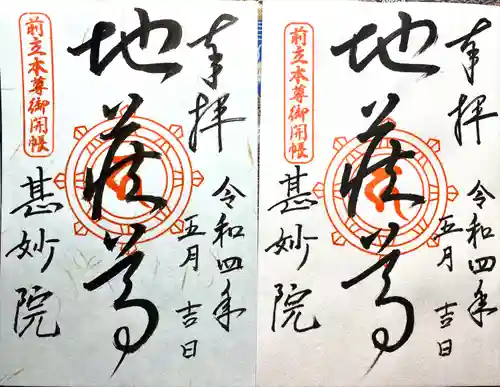 奉拝
令和四年
五月 吉日
地蔵尊
前立本尊御開帳
甚妙院
奉拝
令和四年
五月 吉日
地蔵尊
前立本尊御開帳
甚妙院